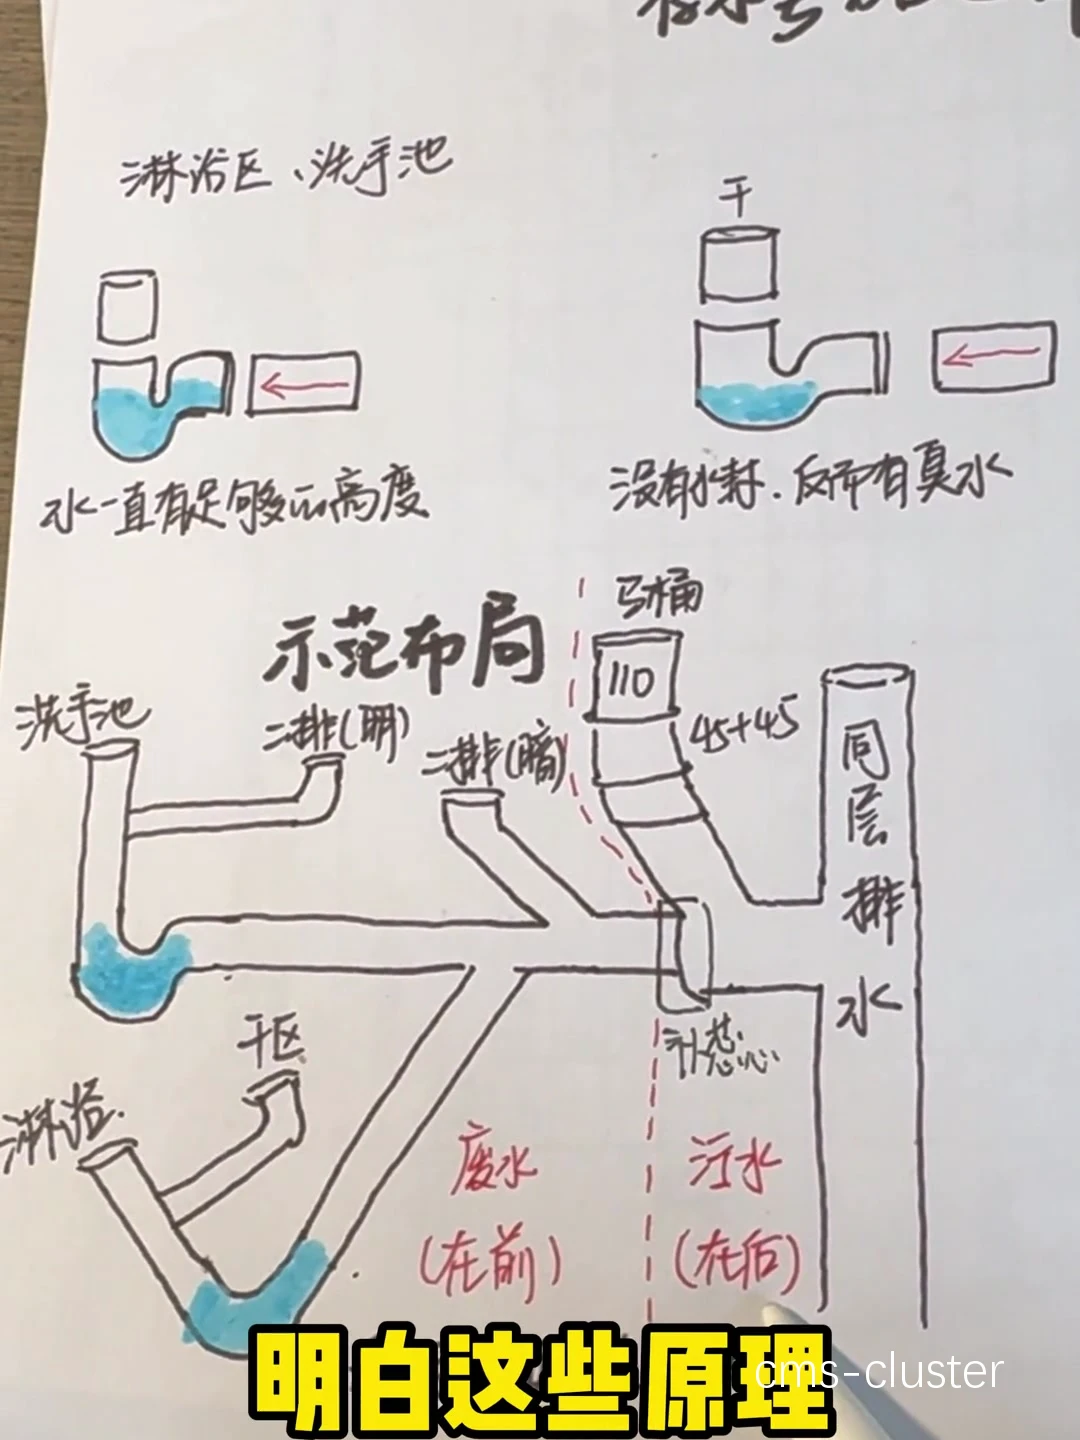 淋浴区、洗手池
干
水一直有足够的高度
没有水封.反而有臭水
示范布局
马桶
110
45+45
洗手池
二排(明)
二排(暗)
同层排水
干区
淋浴.
补芯
废水
(在前)
污水
(在后)
明白这些原理
cms-cluster